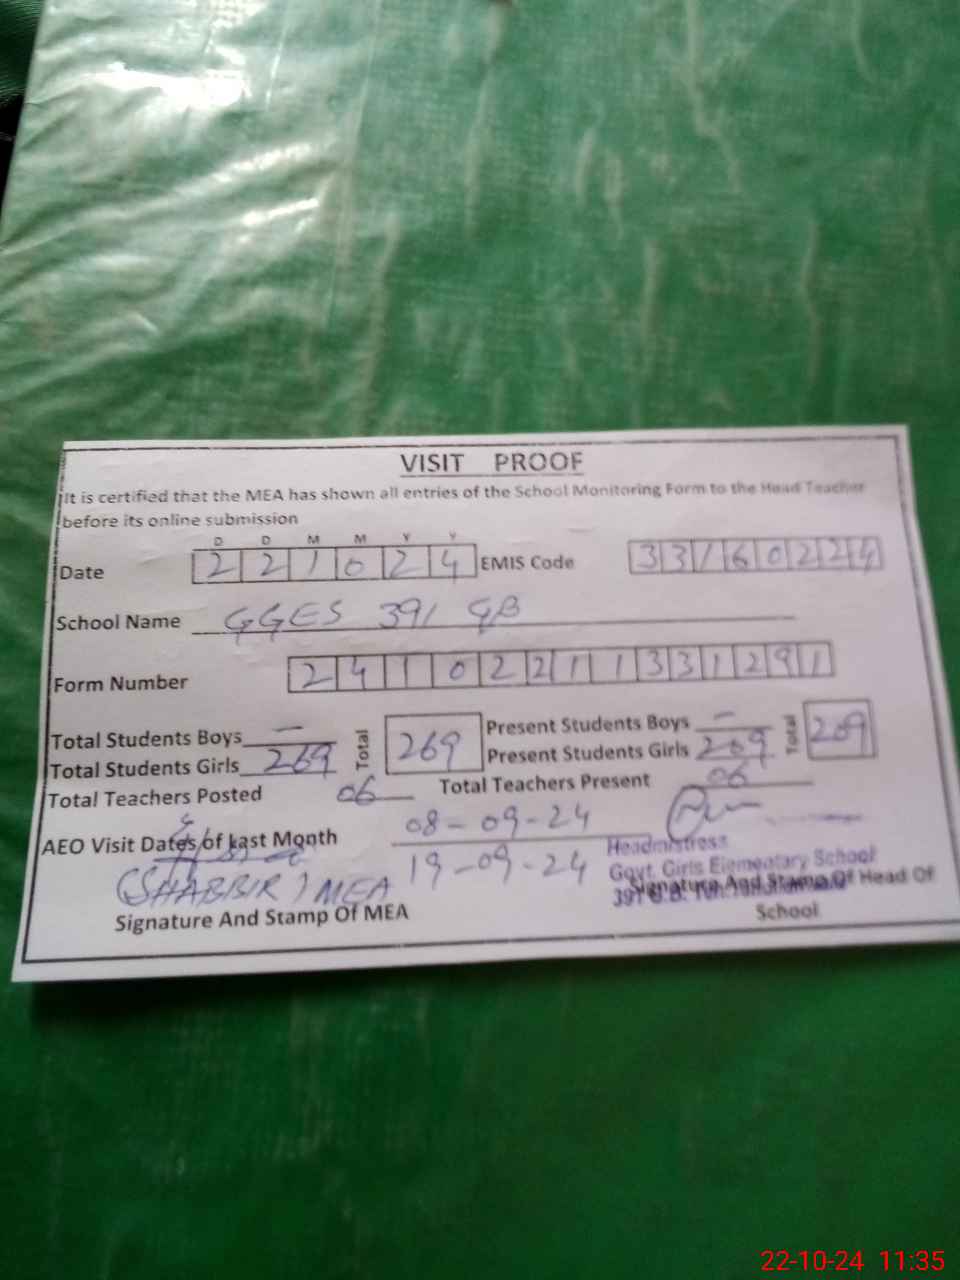 VISIT PROOF
It is certified that the MEA has shown all entries of the School Monitoring Form to the Head Teacher
before its online submission
D D M M Y Y
Date 221024 EMIS Code 33160224
School Name GGES 391 GB
Form Number 24102211331291
Total Students Boys — Total 269 Present Students Boys — Total 269
Total Students Girls 269 Present Students Girls 269
Total Teachers Posted 06 Total Teachers Present 06
AEO Visit Dates of last Month 08-09-24
19-09-24
(SHABBIR) MEA
Signature And Stamp Of MEA
Headmistress
Govt. Girls Elementary School
391 G.B.
Signature And Stamp Of Head Of
School
22-10-24 11:35